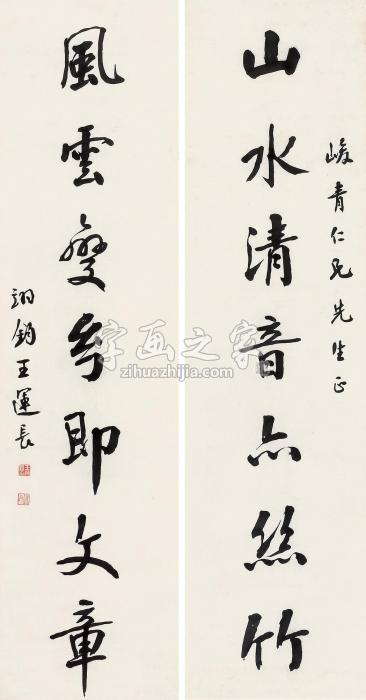 峻青仁兄先生正
山水清音亦絲竹
風雲變即文章
王運長
字画之家
zihuazhijia.com